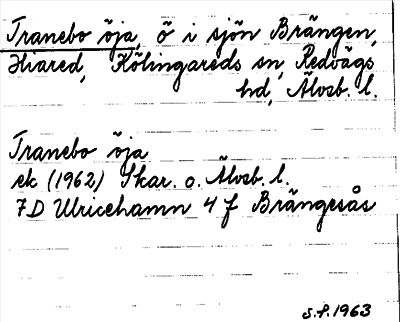 Tranebo öja, ö i sjön Brängen,
Hiared, Kölingareds sn, Redvägs
hd, Älvsb. l.
Tranebo öja
ek (1962) Skar. o. Älvsb. l.
7D Ulricehamn 4 f Brängesås
S.F. 1963